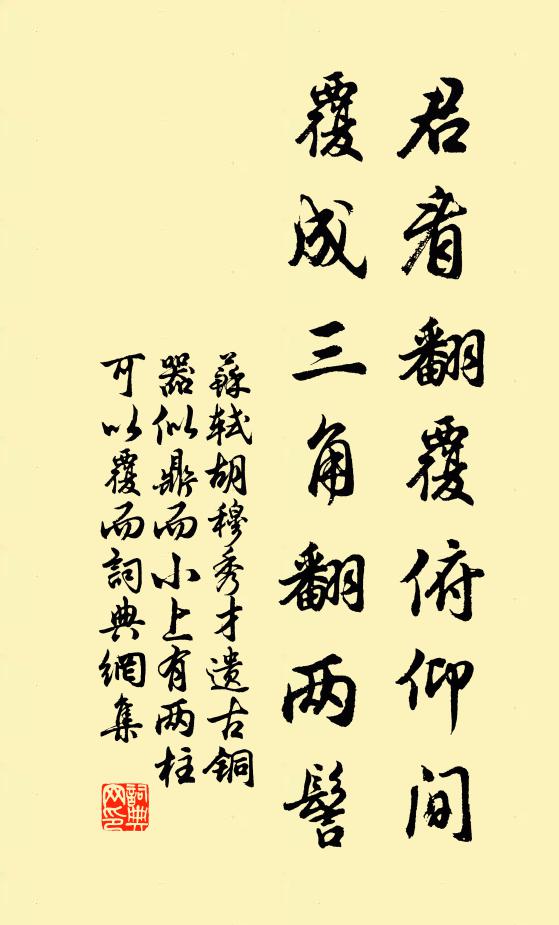 君看翻覆俯仰間
覆成三角翻两髻
蘇軾胡穆秀才遺古銅
器似鼎而小上有两柱
可以覆而詞典網集
詞典
网印